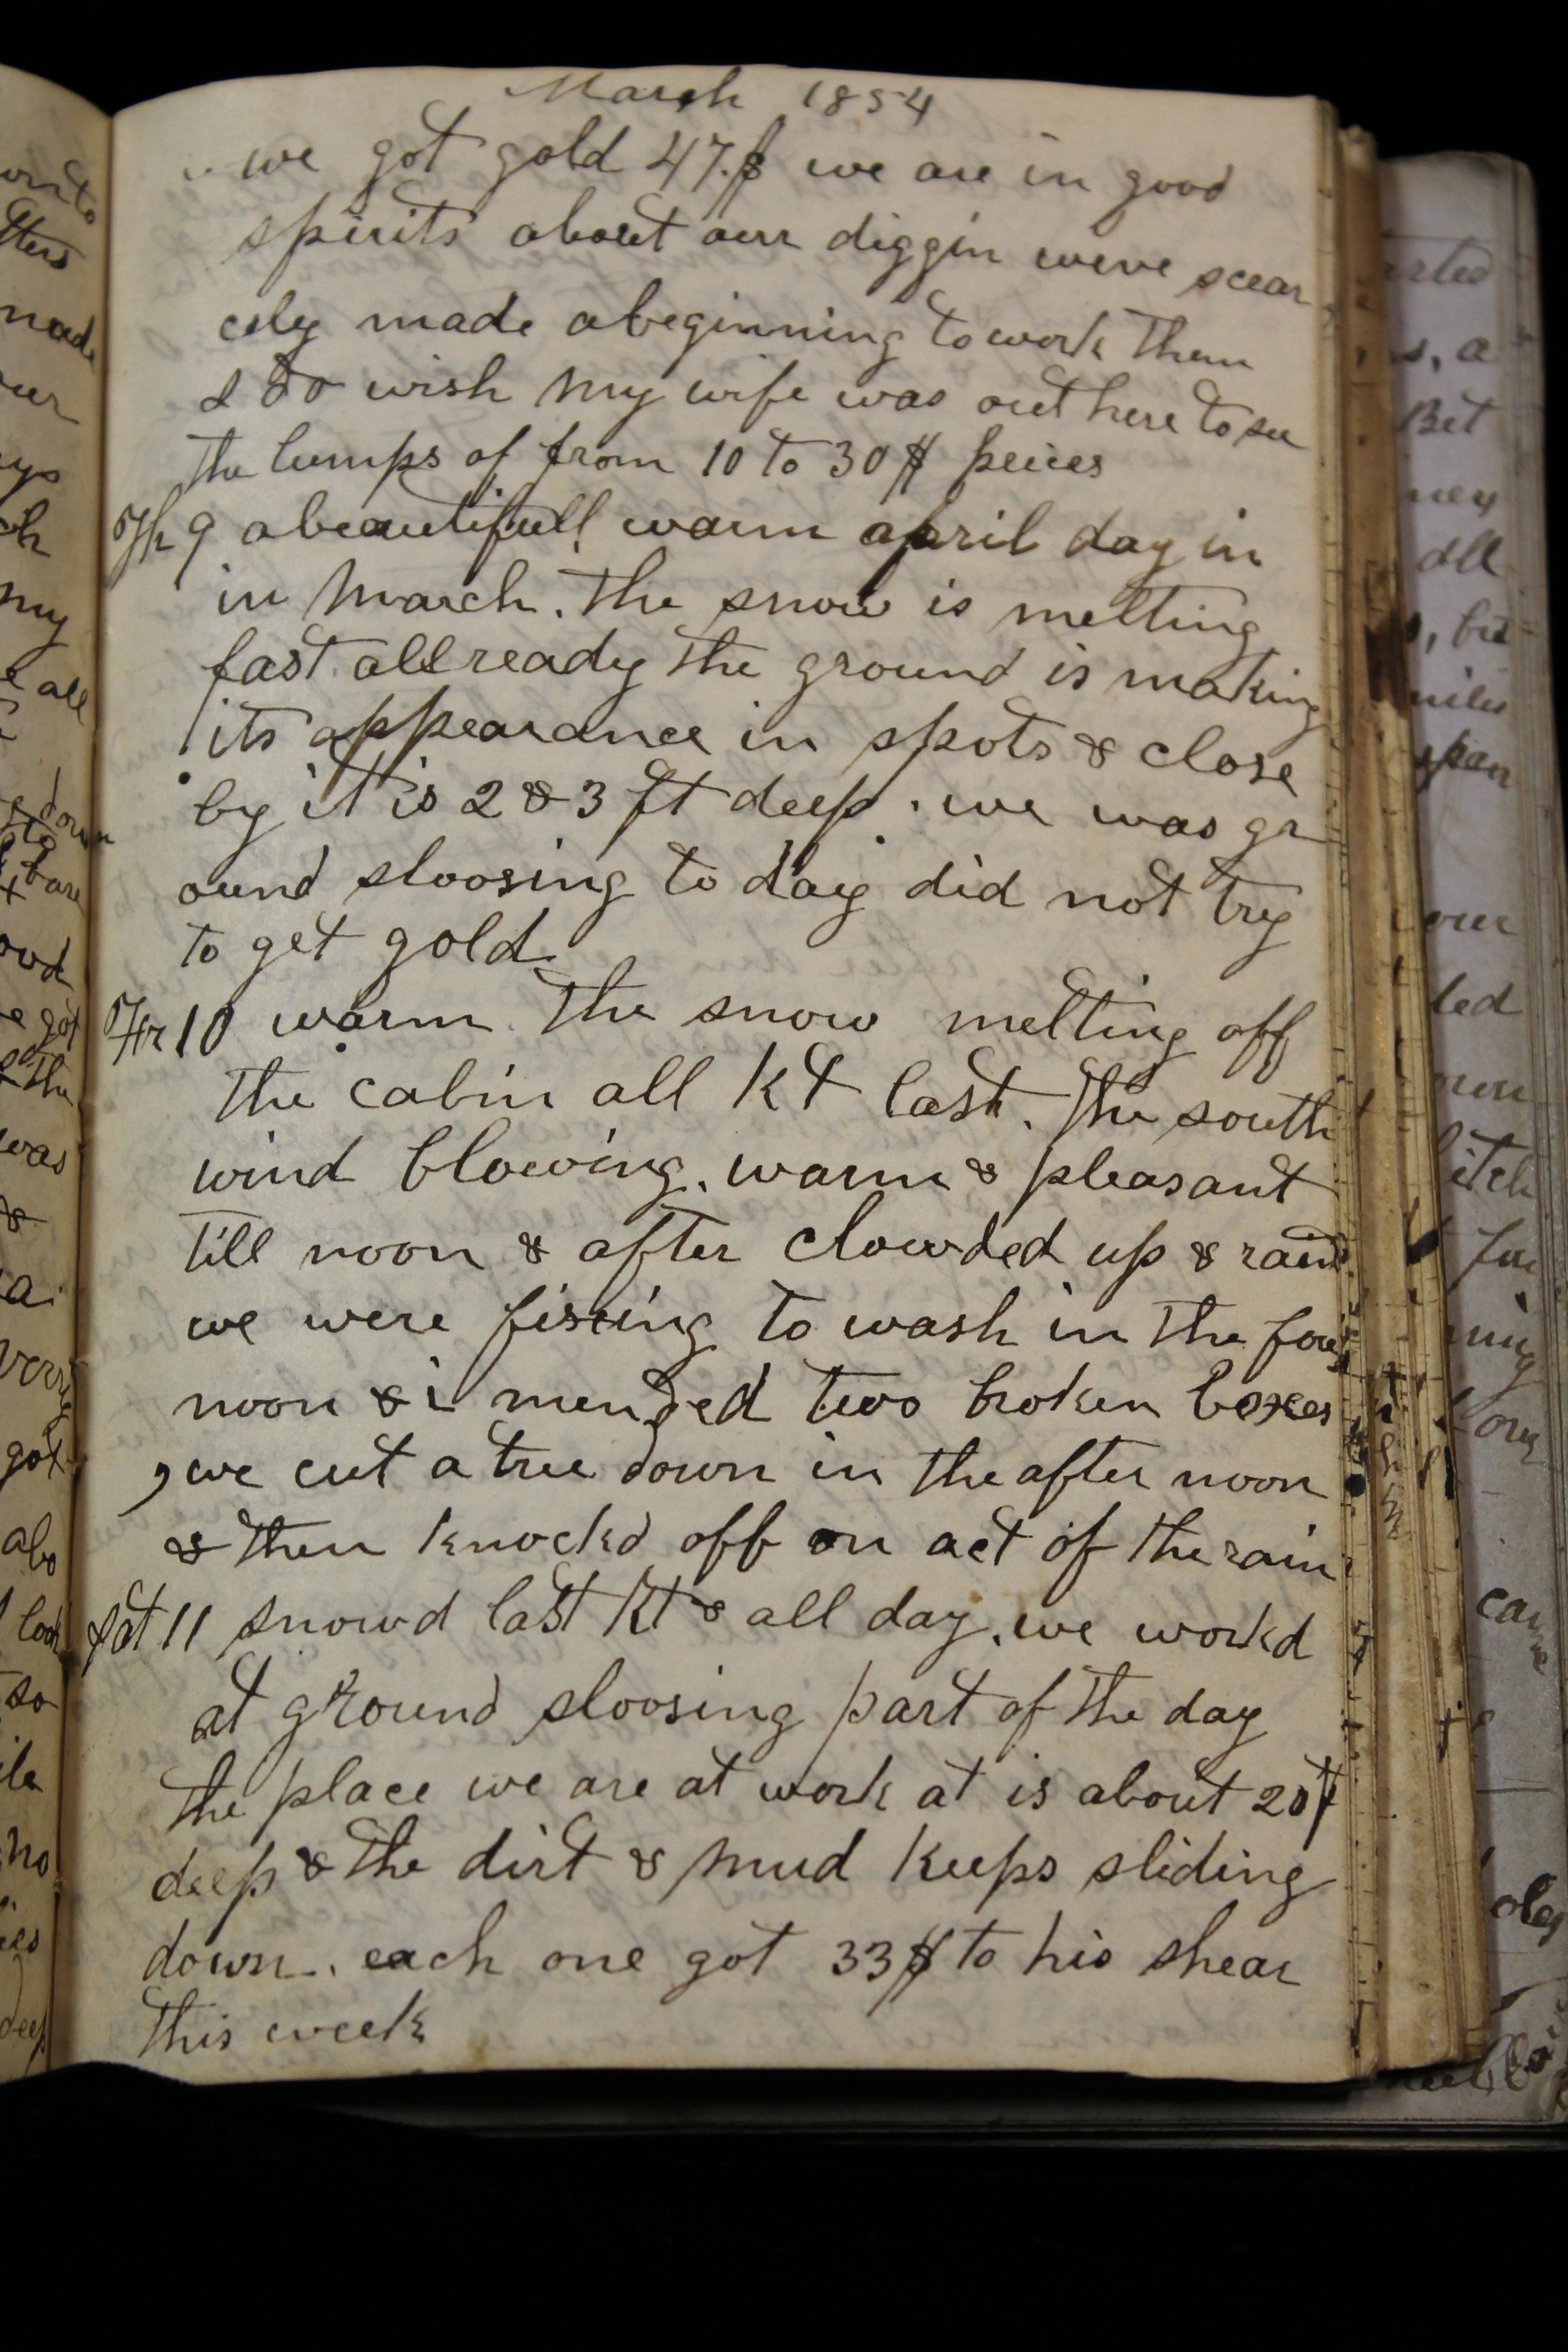 March 1854
we got gold 47.$ we are in good
spirits about our diggin weve scear
cely made abeginning to work them
I do wish my wife was out here to see
the lumps of from 10 to 30 $ peices
Th 9 abeautifull warm april day in
in March. The snow is melting
fast allready the ground is making
its appearance in spots & close
by it is 2 & 3 ft deep. we was gr
ound sloosing to day did not try
to get gold.
Fr 10 warm. The snow melting off
the cabin all Nt last. The south
wind blowing. warm & pleasant
till noon & after clowded up & raind
we were fixing to wash in the fore
noon & i mended two broken boxes
, we cut a tree down in the after noon
& then knockd off on act of the rain
Sat 11 snowd last Nt & all day. we workd
at ground sloosing part of the day
the place we are at work at is about 20 ft
deep & the dirt & mud keeps sliding
down. each one got 33 $ to his shear
this week